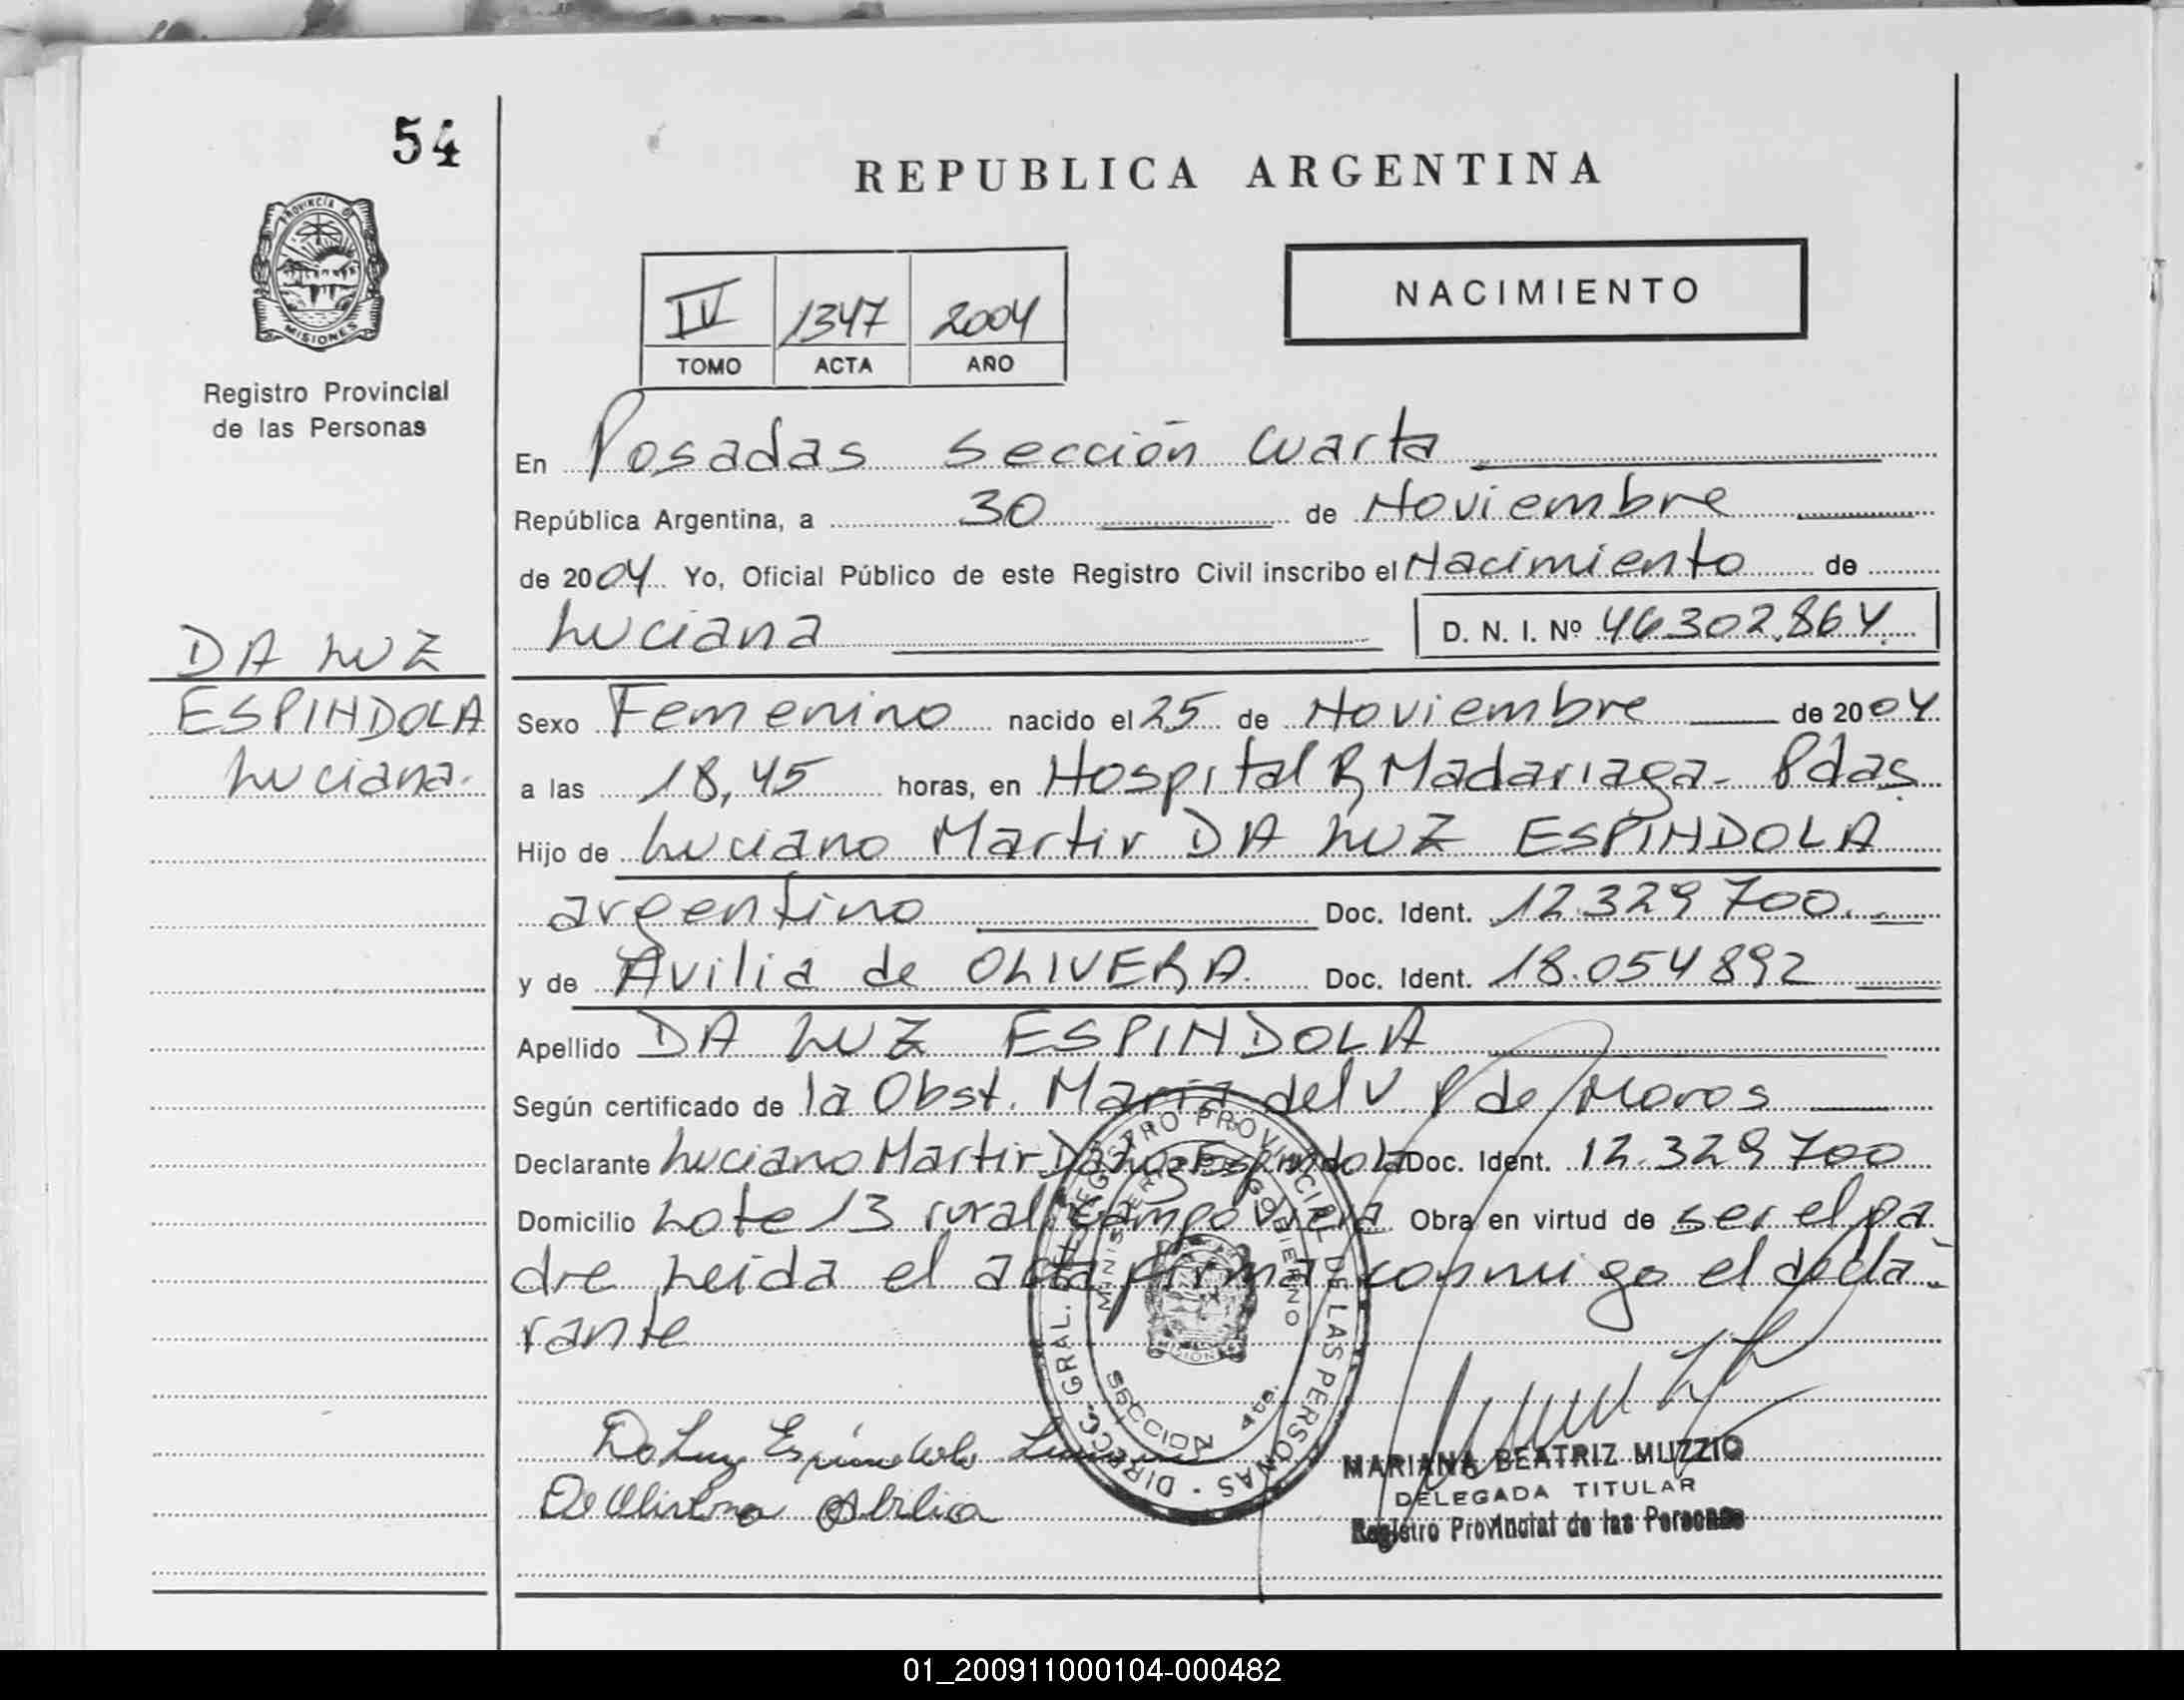 54
REPUBLICA ARGENTINA
PROVINCIA D
MISIONES
Registro Provincial
de las Personas
IV 1347 2004
TOMO ACTA AÑO
NACIMIENTO
En Posadas Sección Cuarta
República Argentina, a 30 de Noviembre
de 2004 Yo, Oficial Público de este Registro Civil inscribo el Nacimiento de
Luciana D. N. I. Nº 46302.864
DA LUZ
ESPINDOLA
Luciana.
Sexo Femenino nacido el 25 de Noviembre de 2004
a las 18,45 horas, en Hospital R Madariaga - Pdas
Hijo de Luciano Martir DA LUZ ESPINDOLA
argentino Doc. Ident. 12.329 700.
y de Avilia de OLIVERA. Doc. Ident. 18.054892
Apellido DA LUZ ESPINDOLA
Según certificado de la Obst. María del V. P de Moros
Declarante Luciano Martir Da Luz Espindola Doc. Ident. 12.329 700
Domicilio Lote 13 rural Campo Viera Obra en virtud de ser el pa
dre Leida el acta firma conmigo el decla-
rante
DIRECC. GRAL. DEL REGISTRO PROVINCIAL DE LAS PERSONAS
MINISTERIO DE GOBIERNO
MISIONES
SECCION 4ta.
Da Luz Espindola
De Olivera Abilia
MARIANA BEATRIZ MUZZIO
DELEGADA TITULAR
Registro Provincial de las Personas
01_200911000104-000482